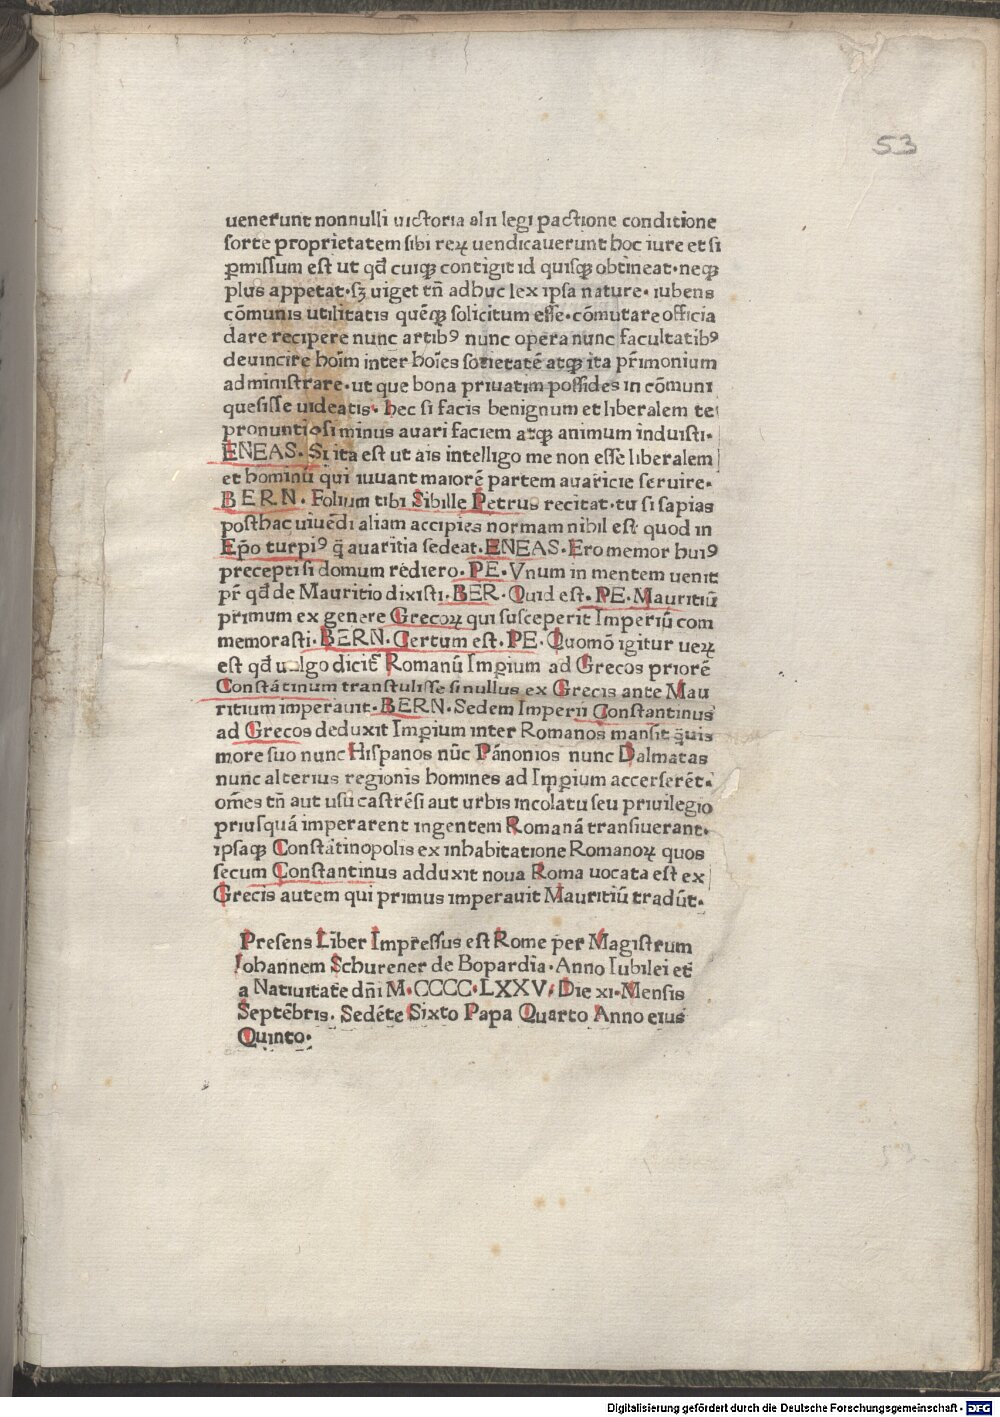 53
uenerunt nonnulli uictoria alii legi pactione conditione
sorte proprietatem sibi reꝝ uendicauerunt hoc iure et si
ꝑmissum est ut qđ cuiqꝫ contigit id quisqꝫ obtineat·neqꝫ
plus appetat·sꝫ uiget tñ adhuc lex ipsa nature·iubens
cōmunis utilitatis quēqꝫ solicitum esse·cōmutare officia
dare recipere nunc artibꝰ nunc opera nunc facultatibꝰ
deuincire hoīm inter hoīes societatē atqꝫ ita pr̄imonium
administrare·ut que bona priuatim possides in cōmuni
quesisse uideatis·hec si facis benignum et liberalem te
pronuntio si minus auari faciem atqꝫ animum induisti·
ENEAS·Si ita est ut ais intelligo me non esse liberalem
et hominū qui iuuant maiorē partem auaricie seruire·
BERN·Folium tibi Sibille Petrus recitat·tu si sapias
posthac uiuēdi aliam accipies normam nihil est quod in
Ep̄o turpiꝰ q̄ auaritia sedeat·ENEAS·Ero memor huiꝰ
precepti si domum rediero·PE·Vnum in mentem uenit
pr̄ qđ de Mauritio dixisti·BER·Quid est·PE·Mauritiū
primum ex genere Grecoꝝ qui susceperit Imperiū com
memorasti·BERN·Certum est·PE·Quomō igitur ueꝝ
est qđ uulgo dicit̄ Romanū Imꝑium ad Grecos priorē
Constātinum transtulisse si nullus ex Grecis ante Mau
ritium imperauit·BERN·Sedem Imperii Constantinus
ad Grecos deduxit Imꝑium inter Romanos mansit q̄uis
more suo nunc Hispanos nūc Pānonios nunc Dalmatas
nunc alterius regionis homines ad Imꝑium accerserēt·
om̄es tñ aut usu castrēsi aut urbis incolatu seu priuilegio
priusquā imperarent in gentem Romanā transiuerant·
ipsaqꝫ Constātinopolis ex inhabitatione Romanoꝝ quos
secum Constantinus adduxit noua Roma uocata est ex
Grecis autem qui primus imperauit Mauritiū tradūt·
Presens Liber Impressus est Rome per Magistrum
Iohannem Schurener de Bopardia·Anno Iubilei et
a Natiuitate dñi M·CCCC·LXXV·Die xi·Mensis
Septēbris·Sedēte Sixto Papa Quarto Anno eius
Quinto·
53.
Digitalisierung gefördert durch die Deutsche Forschungsgemeinschaft - DFG